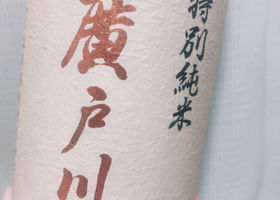 特別純米
廣戸川